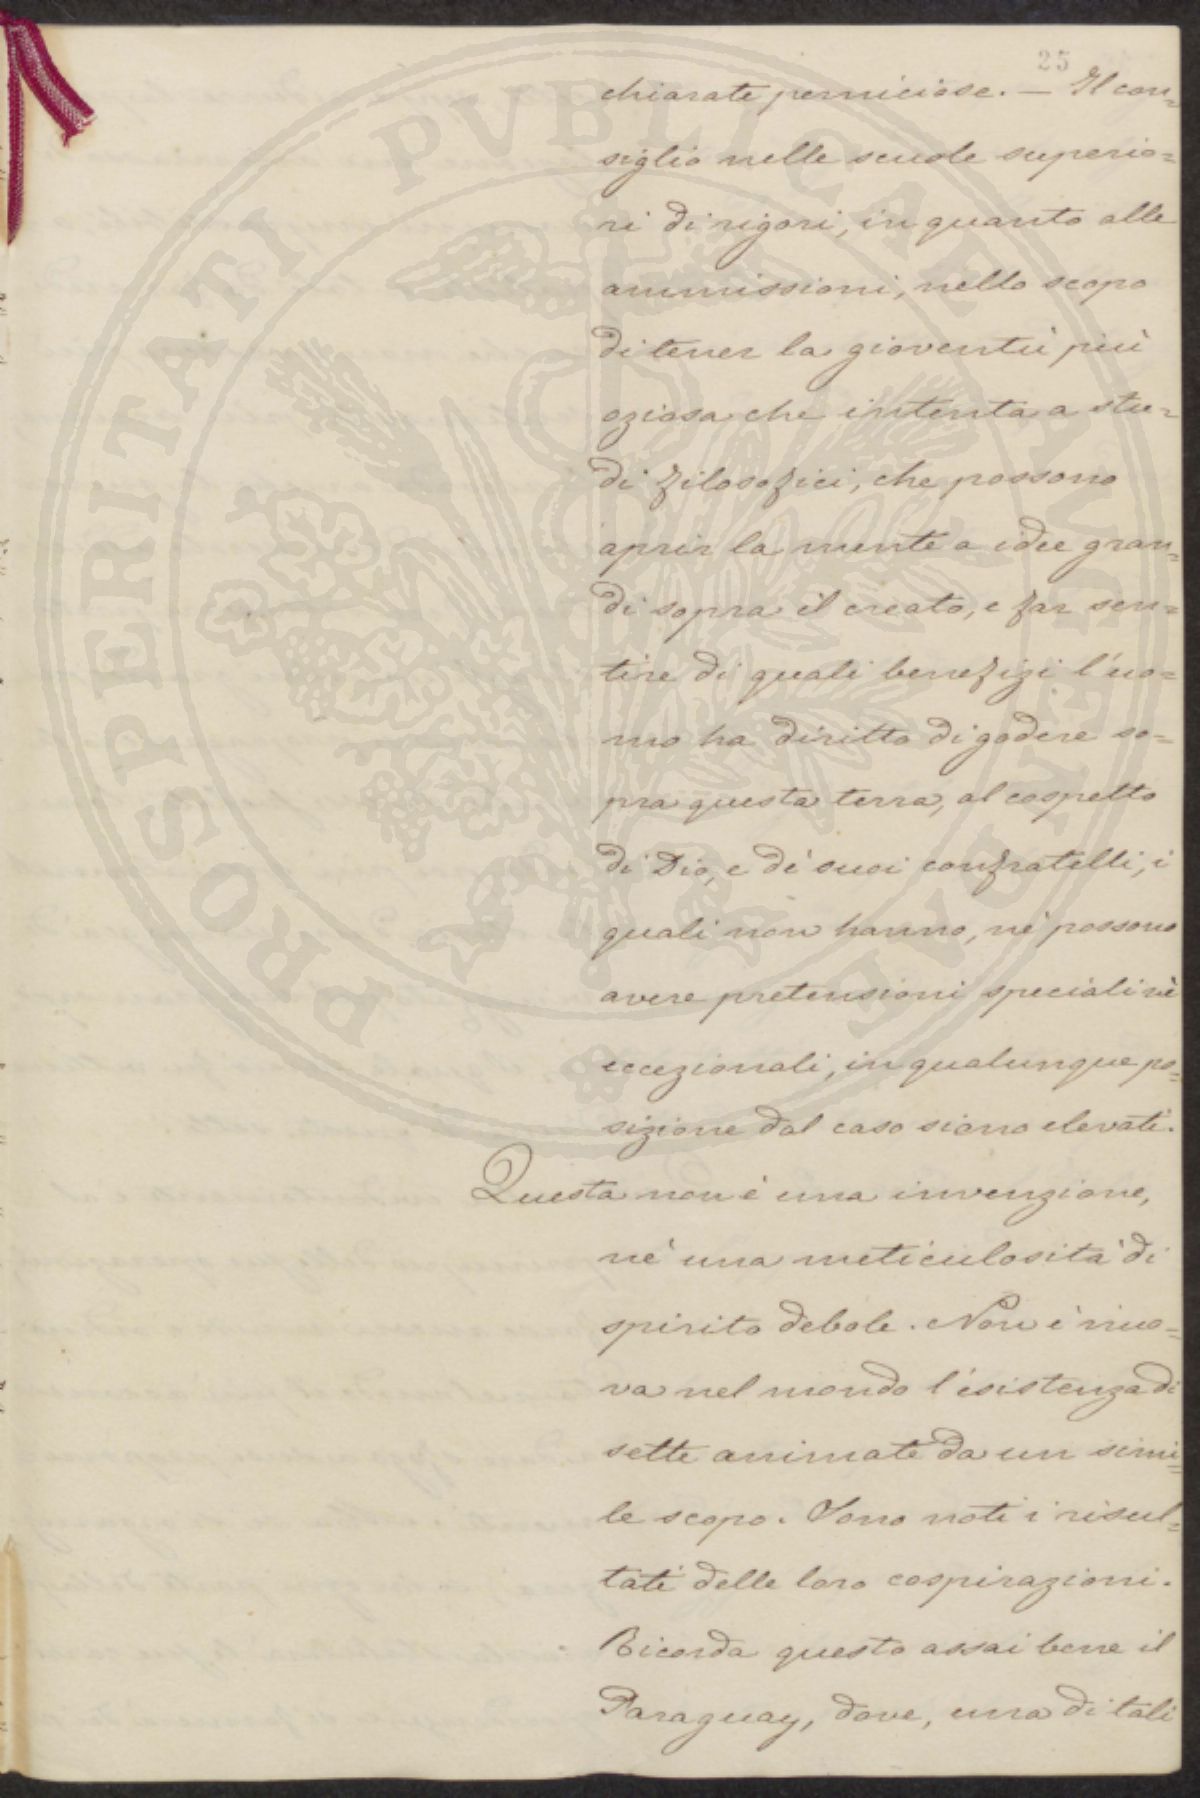 25
chiarate perniciose. — Il con=
siglio nelle scuole superio=
ri di rigori, in quanto alle
ammissioni, nello scopo
di tener la gioventù più
oziosa che intenta a stu=
di filosofici, che possono
aprir la mente a idee gran=
di sopra il creato, e far sen=
tire di quali benefizi l'uo=
mo ha diritto di godere so=
pra questa terra, al cospetto
di Dio, e de' suoi confratelli, i
quali non hanno, nè possono
avere pretensioni speciali nè
eccezionali, in qualunque po=
sizione dal caso siano elevati.
Questa non è una invenzione,
nè una meticulosità di
spirito debole. Non è nuo=
va nel mondo l'esistenza di
sette animate da un simi=
le scopo. Sono noti i risul=
tati delle loro cospirazioni.
Ricorda questo assai bene il
Paraguay, dove, una di tali
PROSPERITATI PVBLICAE AVGENDAE